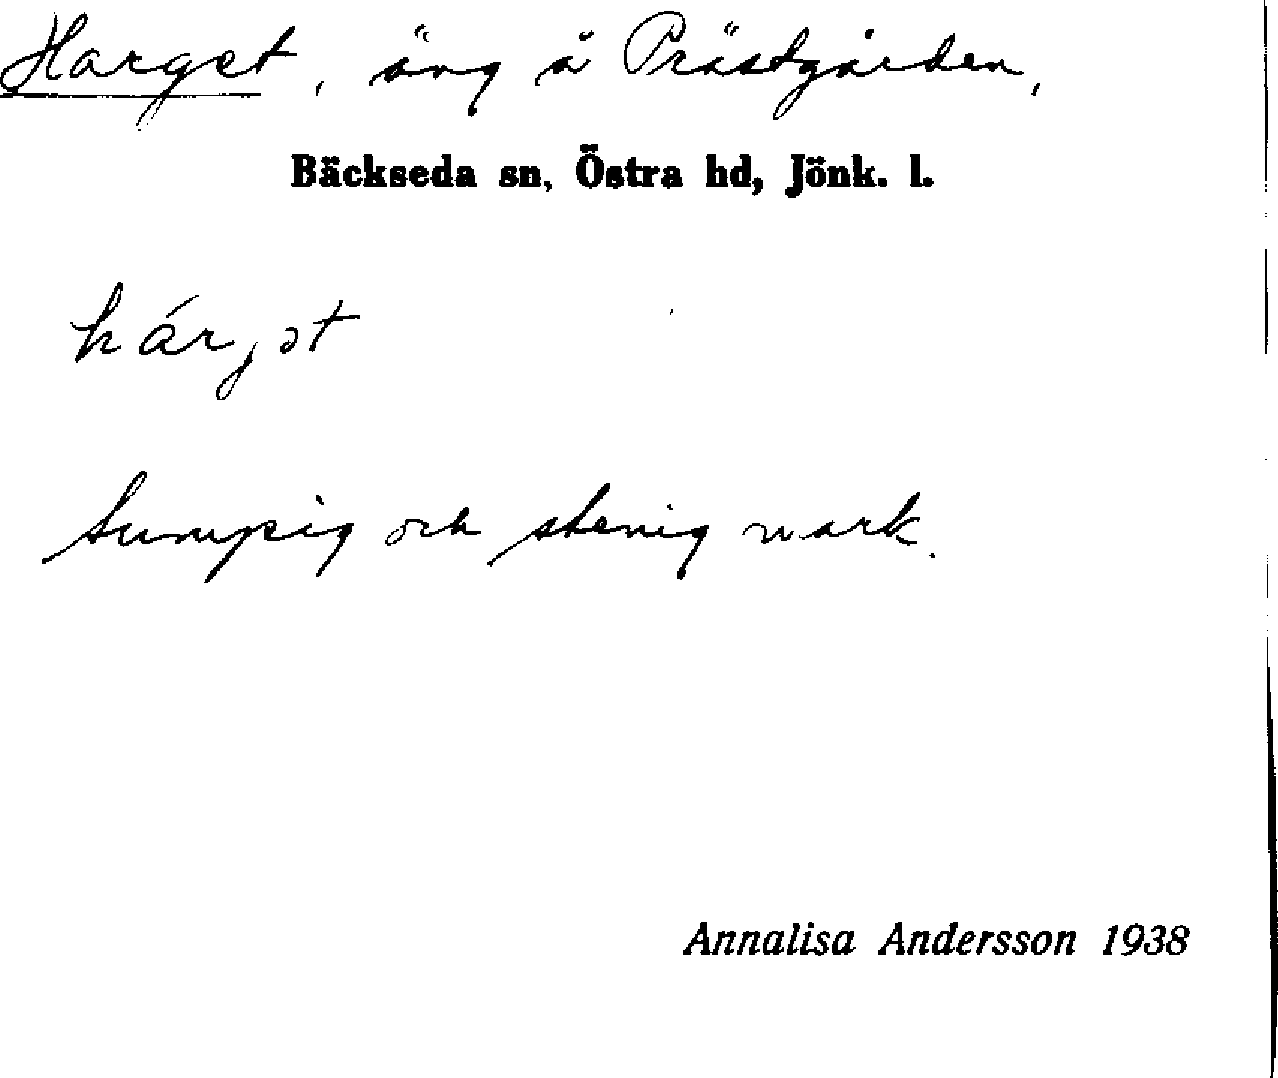 Harget, äng å Prästgården,
Bäckseda sn, Östra hd, Jönk. l.
hárjət
Sumpig och stenig mark.
Annalisa Andersson 1938